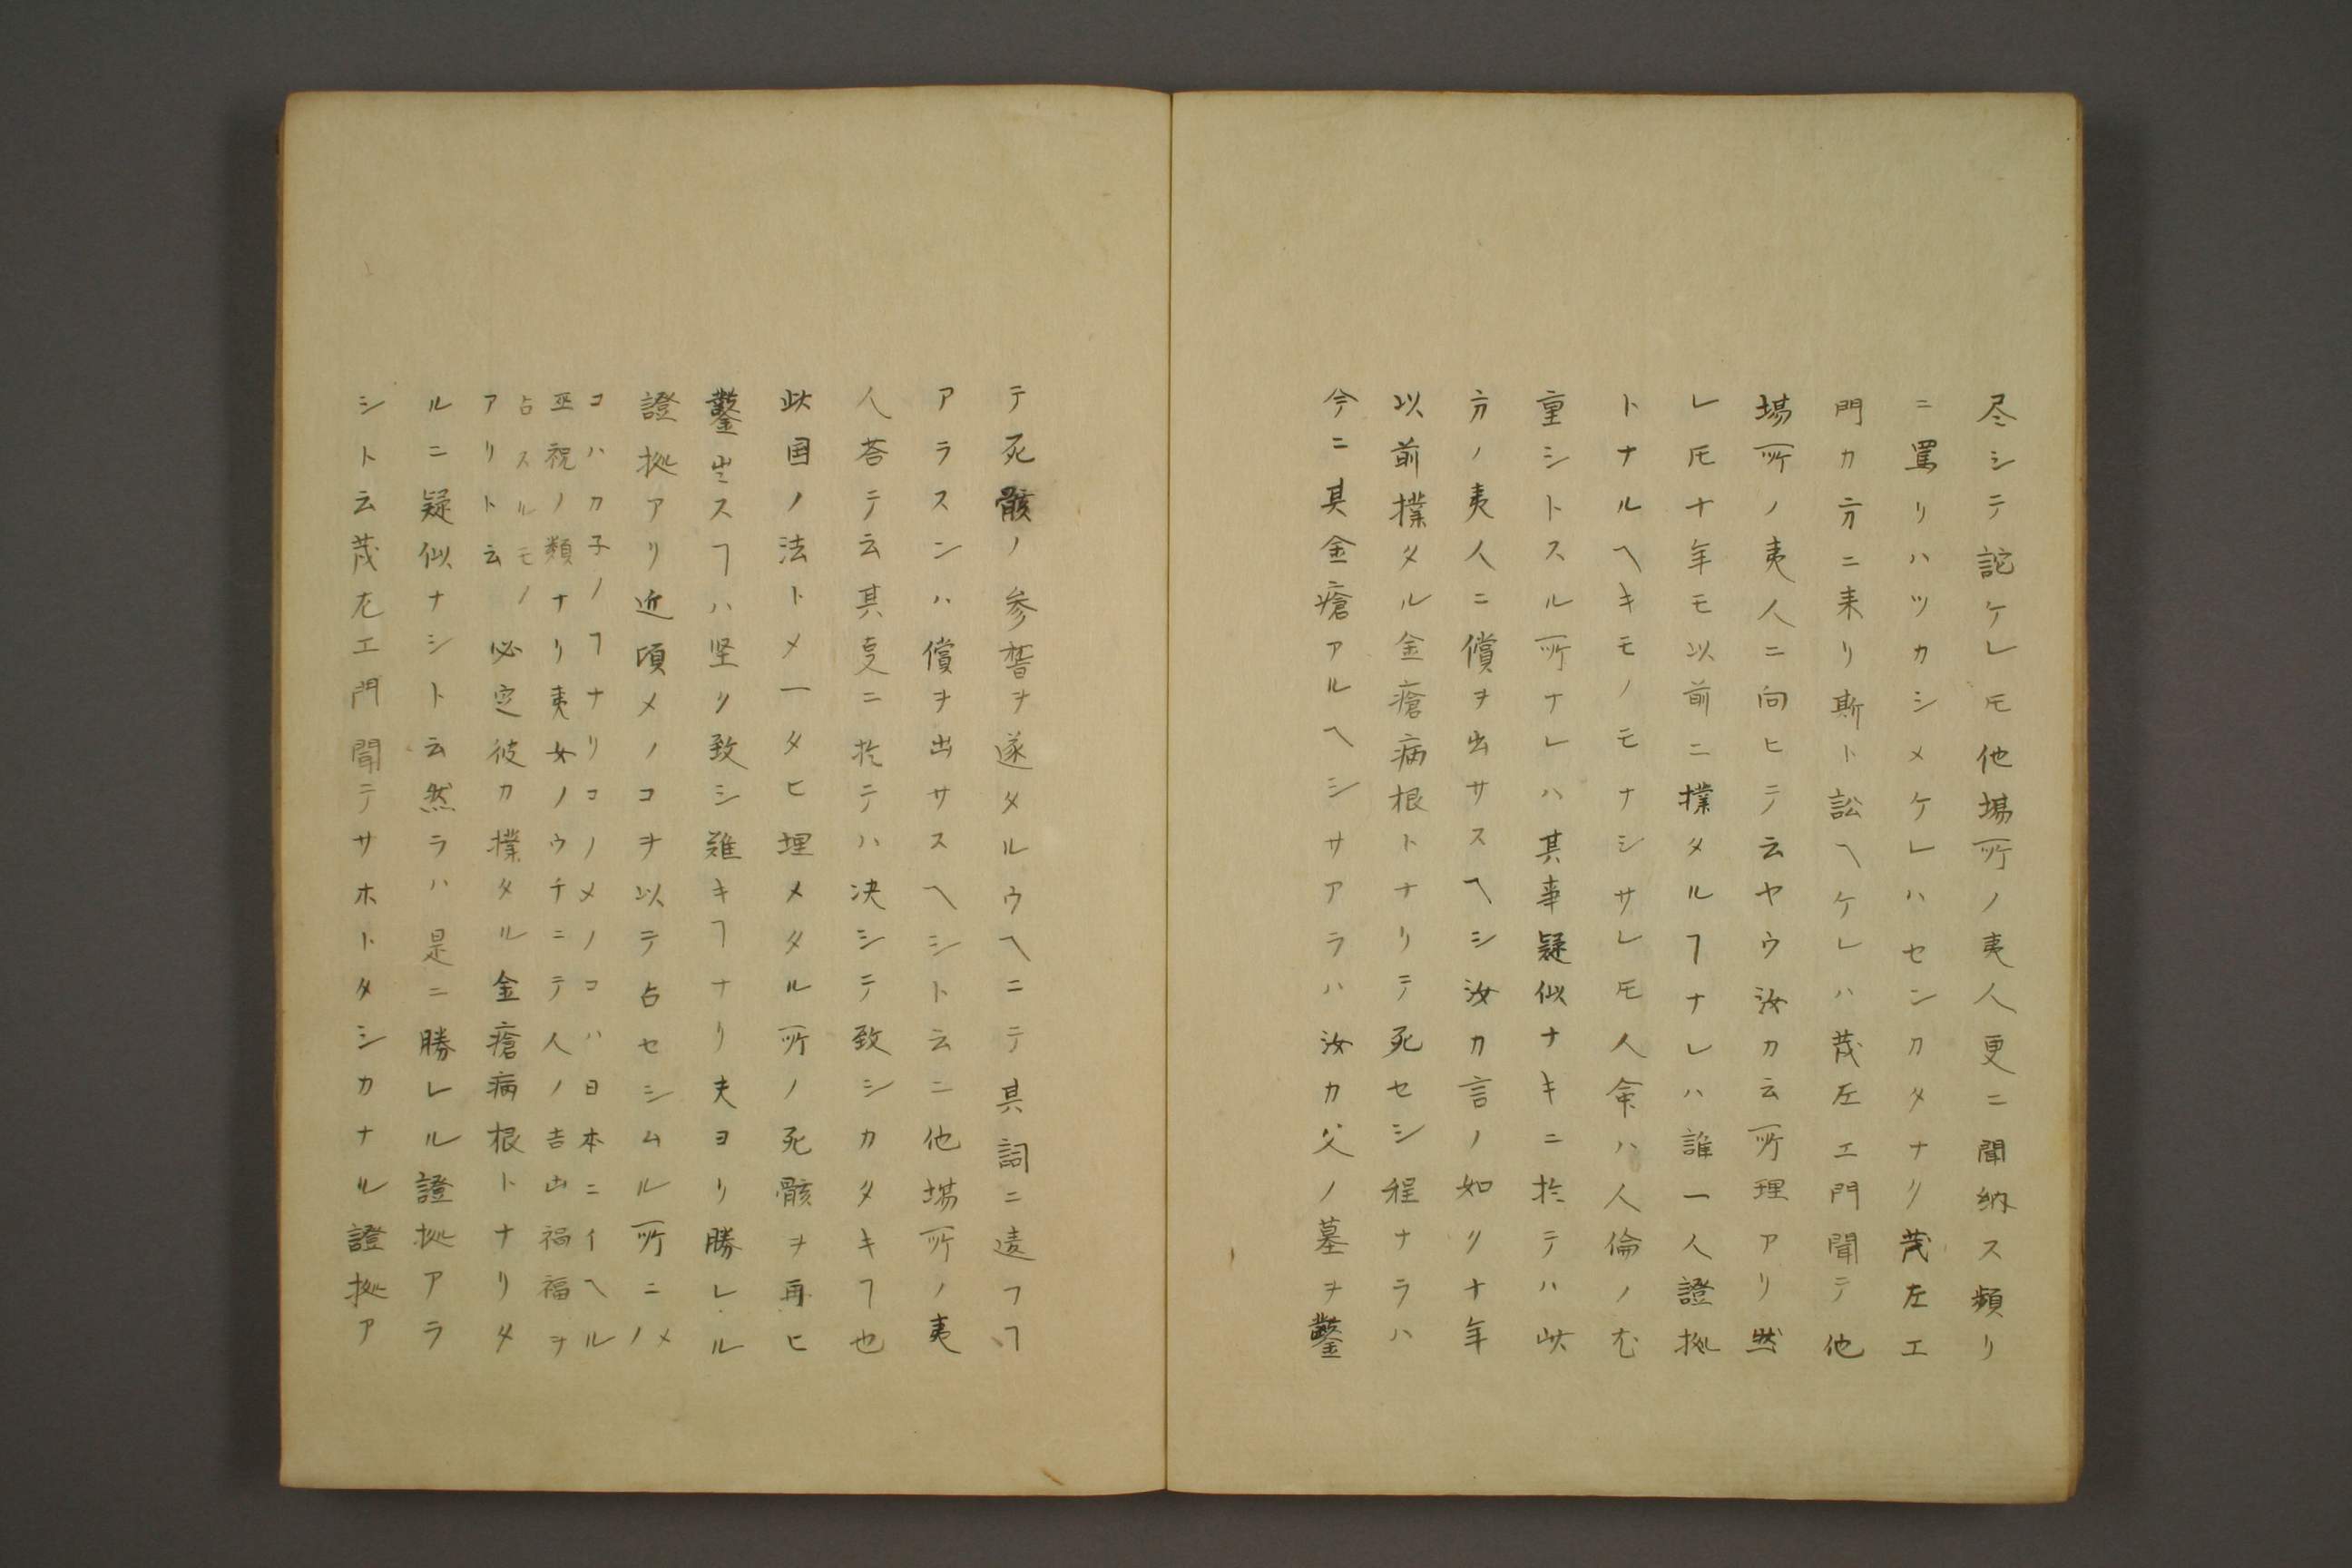 尽シテ詫ケレ𪜈他場所ノ夷人更ニ聞納ス頻リ
ニ罵リハツカシメケレハセンカタナリ茂左エ
門カ方ニ来リ斯ト訟ヘケレハ茂左エ門聞テ他
場所ノ夷人ニ向ヒテ云ヤウ汝カ云所理アリ然
レ𪜈十年モ以前ニ撲タルヿナレハ誰一人證拠
トナルヘキモノモナシサレ𪜈人命ハ人倫ノ尤
重シトスル所ナレハ其事疑似ナキニ於テハ此
方ノ夷人ニ償ヲ出サスヘシ汝カ言ノ如ク十年
以前撲タル金瘡病根トナリテ死セシ程ナラハ
今ニ其金瘡アルヘシサアラハ汝カ父ノ墓ヲ鑿
テ死骸ノ参㫘ヲ遂タルウヘニテ其詞ニ違フヿ
アラスンハ償ヲ出サスヘシト云ニ他場所ノ夷
人荅テ云其㕝ニ於テハ决シテ致シカタキヿ也
此国ノ法トメ一タヒ埋メタル所ノ死骸ヲ再ヒ
鑿出スヿハ堅ク致シ難キヿナリ夫ヨリ勝レル
證拠アリ近頃メノコヲ以テ占セシムル所ニメノ
コハカ子ノヿナリコノメノコハ日本ニイヘル
巫祝ノ類ナリ夷女ノウチニテ人ノ吉凶禍福ヲ
占スルモノ
アリト云必定彼カ撲タル金瘡病根トナリタ
ルニ疑似ナシト云然ラハ是ニ勝レル證拠アラ
シト云茂左エ門聞テサホトタシカナル證拠ア